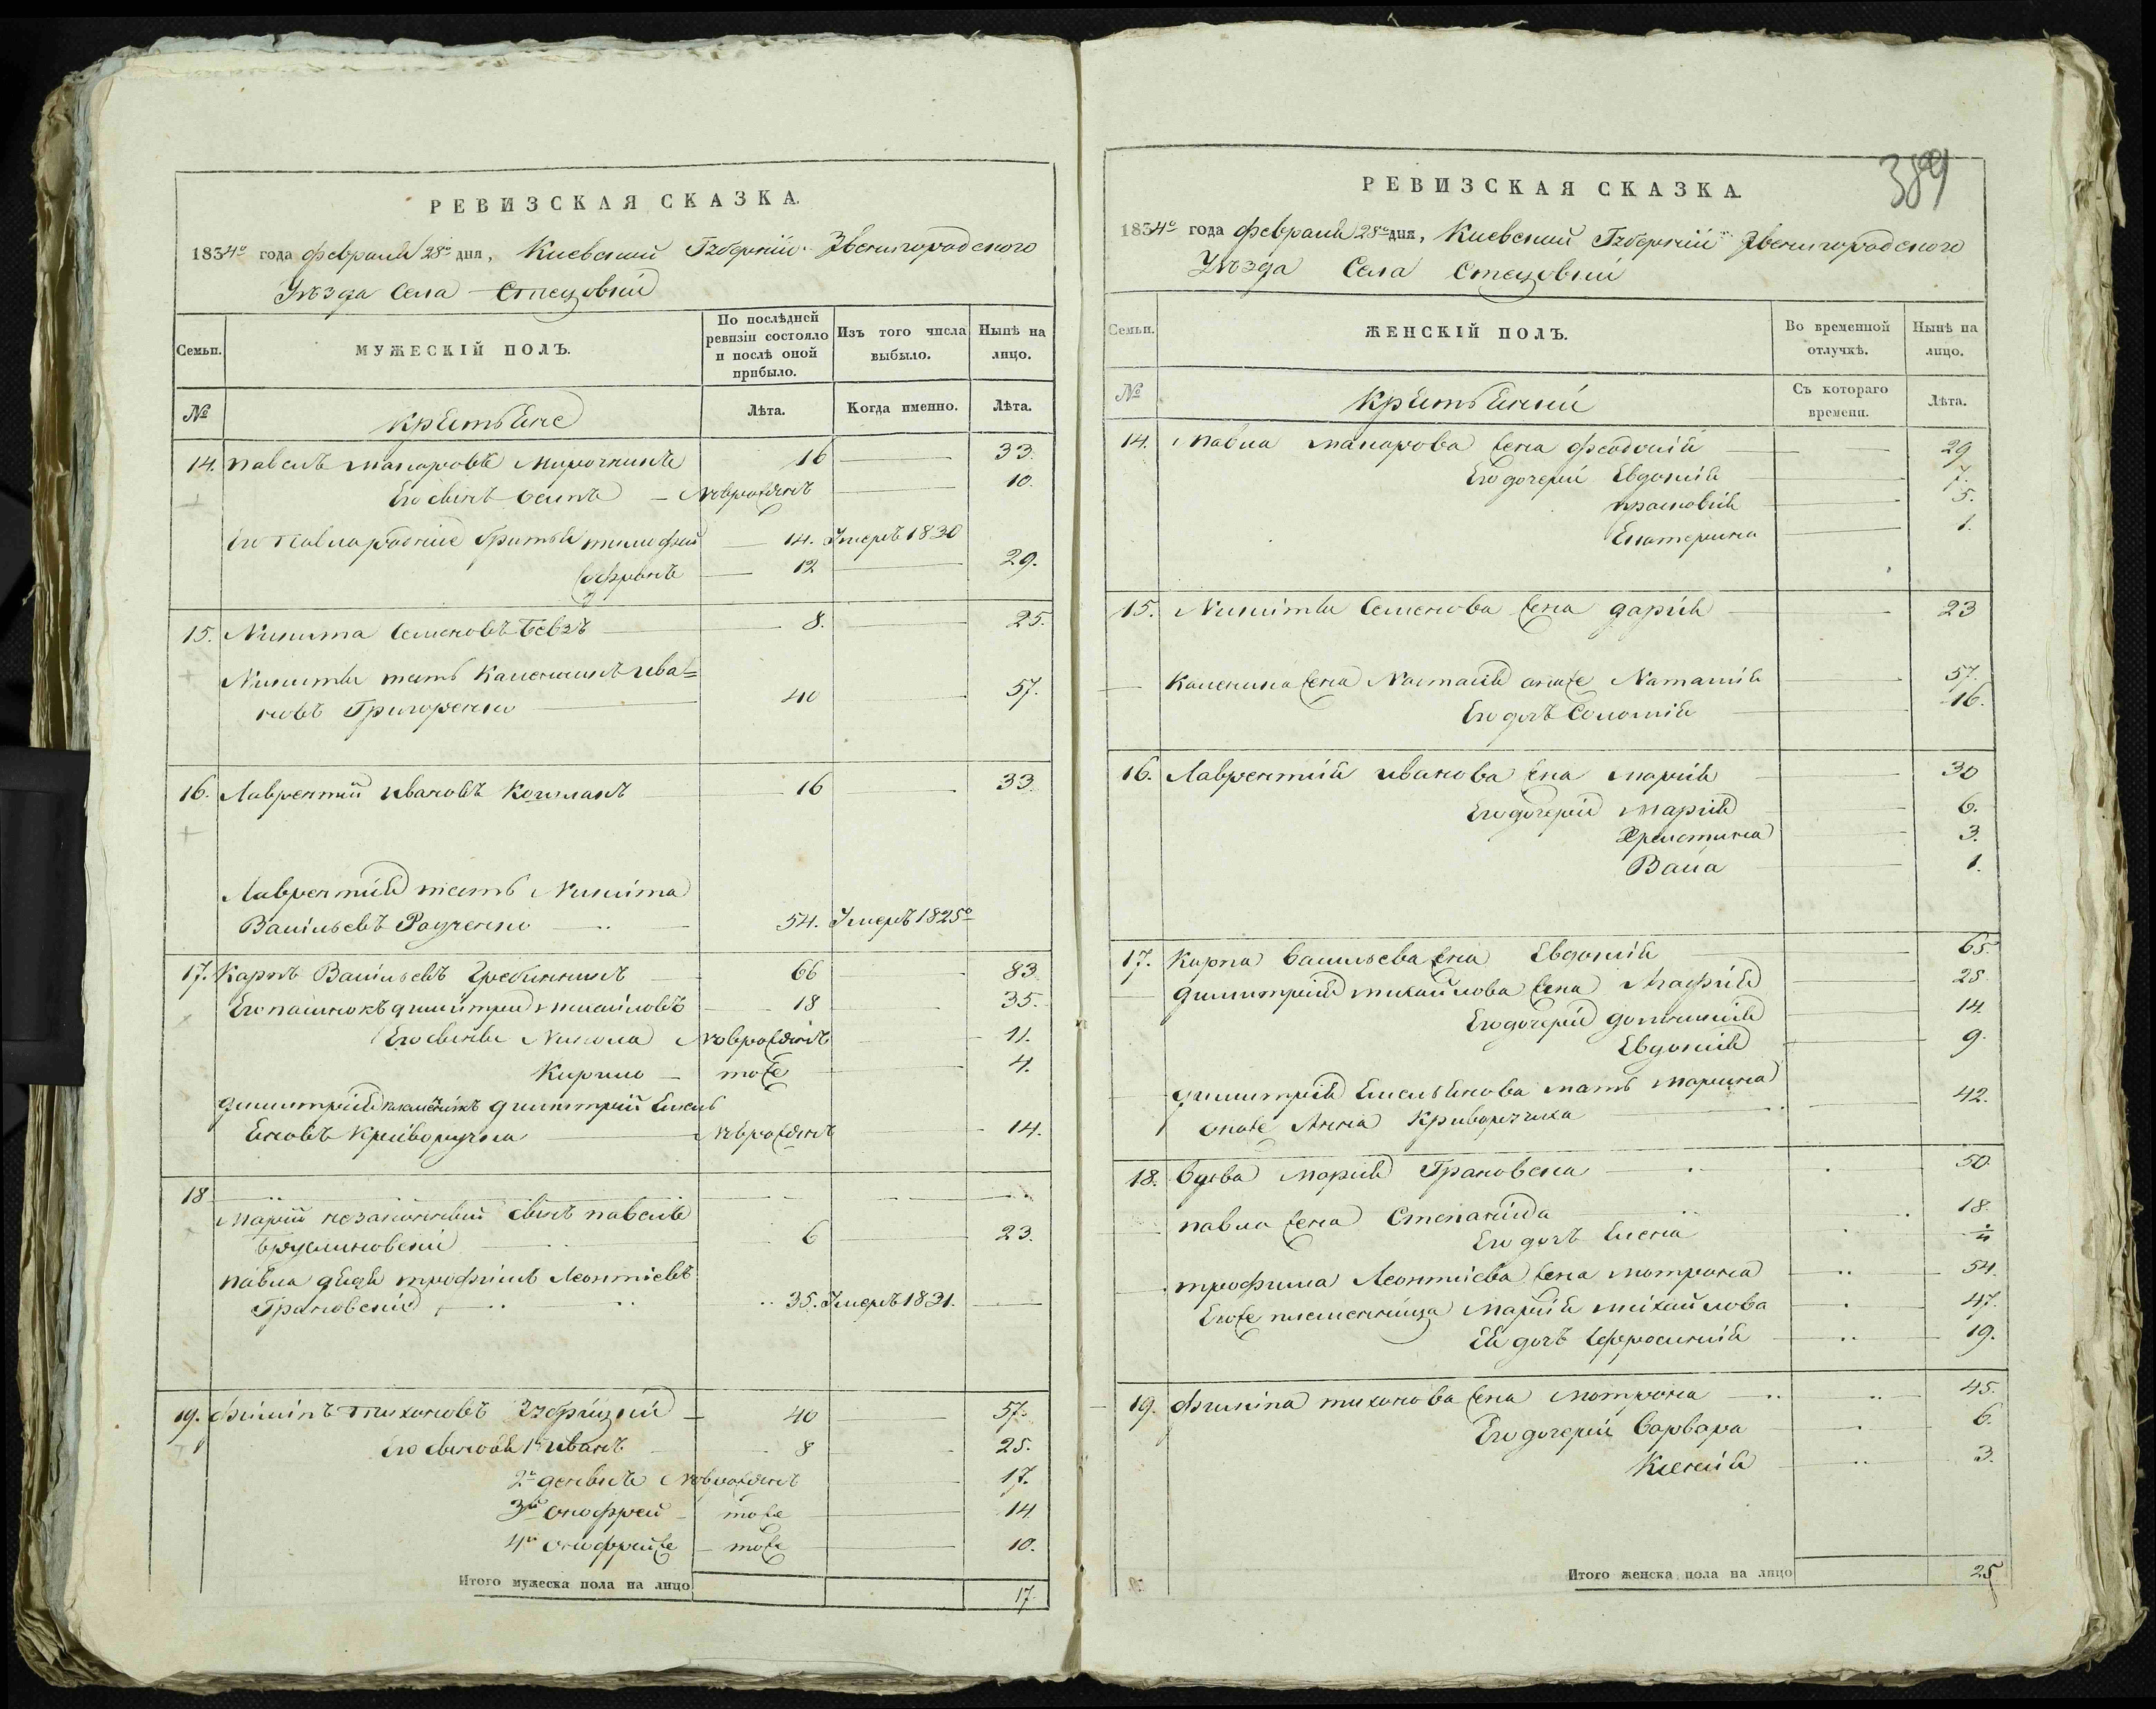 РЕВИЗСКАЯ СКАЗКА.
1834го года февраля 28го дня, Киевской Губернии Звенигородского
Уезда Села Стецовки
Семьи.
МУЖЕСКІЙ ПОЛЪ.
По послѣдней ревизіи состояло и послѣ оной прибыло.
Изъ того числа выбыло.
Нынѣ на лицо.
№
Крестьяне
Лѣта.
Когда именно.
Лѣта.
14. Павелъ Макаровъ 16 33.
Его сынъ Осипъ новорожденъ 10.
Его Павла родные братья Тимофей 14. Умеръ 1830
Софронъ 12 29.
15. Никита Семеновъ Бевзъ 8. 25.
Никиты тесть Каленикъ Ива=
новъ Григоренко 40 57.
16. Лаврентий Ивановъ 16 33.
Лаврентия тесть Никита
Васильевъ Радченко 54. Умеръ 1825го
17. Карпъ Васильевъ Гребинникъ 66 83
Его пасынокъ Димитрий Михайловъ 18 35.
Его сыны Никола новорожденъ 11.
Кирило тоже 4.
Димитрия племянникъ Димитрий Емель
яновъ Криворучка новорожденъ 14.
18
Марии незаконный сынъ Павелъ
6 23.
Павла дядя Трофимъ Леонтиевъ
Грановский 35. Умеръ 1831.
19. Филипъ Тихоновъ 40 57.
Его сыновья 1й Иванъ 8 25.
2й новорожденъ 17.
3й Онофрей тоже 14
4й Онофрей же тоже 10.
Итого мужеска пола на лицо 17.
389
РЕВИЗСКАЯ СКАЗКА.
1834го года февраля 28го дня, Киевской Губернии Звенигородского
Уезда Села Стецовки
Семьи.
ЖЕНСКІЙ ПОЛЪ.
Во временной отлучкѣ.
Нынѣ на лицо.
№
Крестьянки
Съ котораго времени.
Лѣта.
14. Павла Макарова жена Феодосия 29
Его дочери Евдокия 7.
Прасковия 5.
Екатерина 1.
15. Никиты Семенова жена Дария 23
Каленика жена Настасия она же Наталия 57.
Его дочъ Соломия 16.
16. Лаврентия Иванова жена Мария 30
Его дочери Мария 6.
Христина 3.
Васа 1.
17. Карпа Васильева жена Евдокия 65.
Димитрия Михайлова жена Агафия 28
Его дочери Домникия 14.
Евдокия 9.
Димитрия Емельянова мать Марина
она же Анна Криворучиха 42.
18. Вдова Мария Грановска 50.
Павла жена Степанида 18.
Его дочъ Елена
Трофима Леонтиева жена Мотрона 54.
Его же племянница Мария Михайлова 47.
Ея дочъ Ефросиния 19.
19. Филипа Тихонова жена Мотрона 45.
Его дочери Варвара 6.
Ксения 3.
Итого женска пола на лицо 25